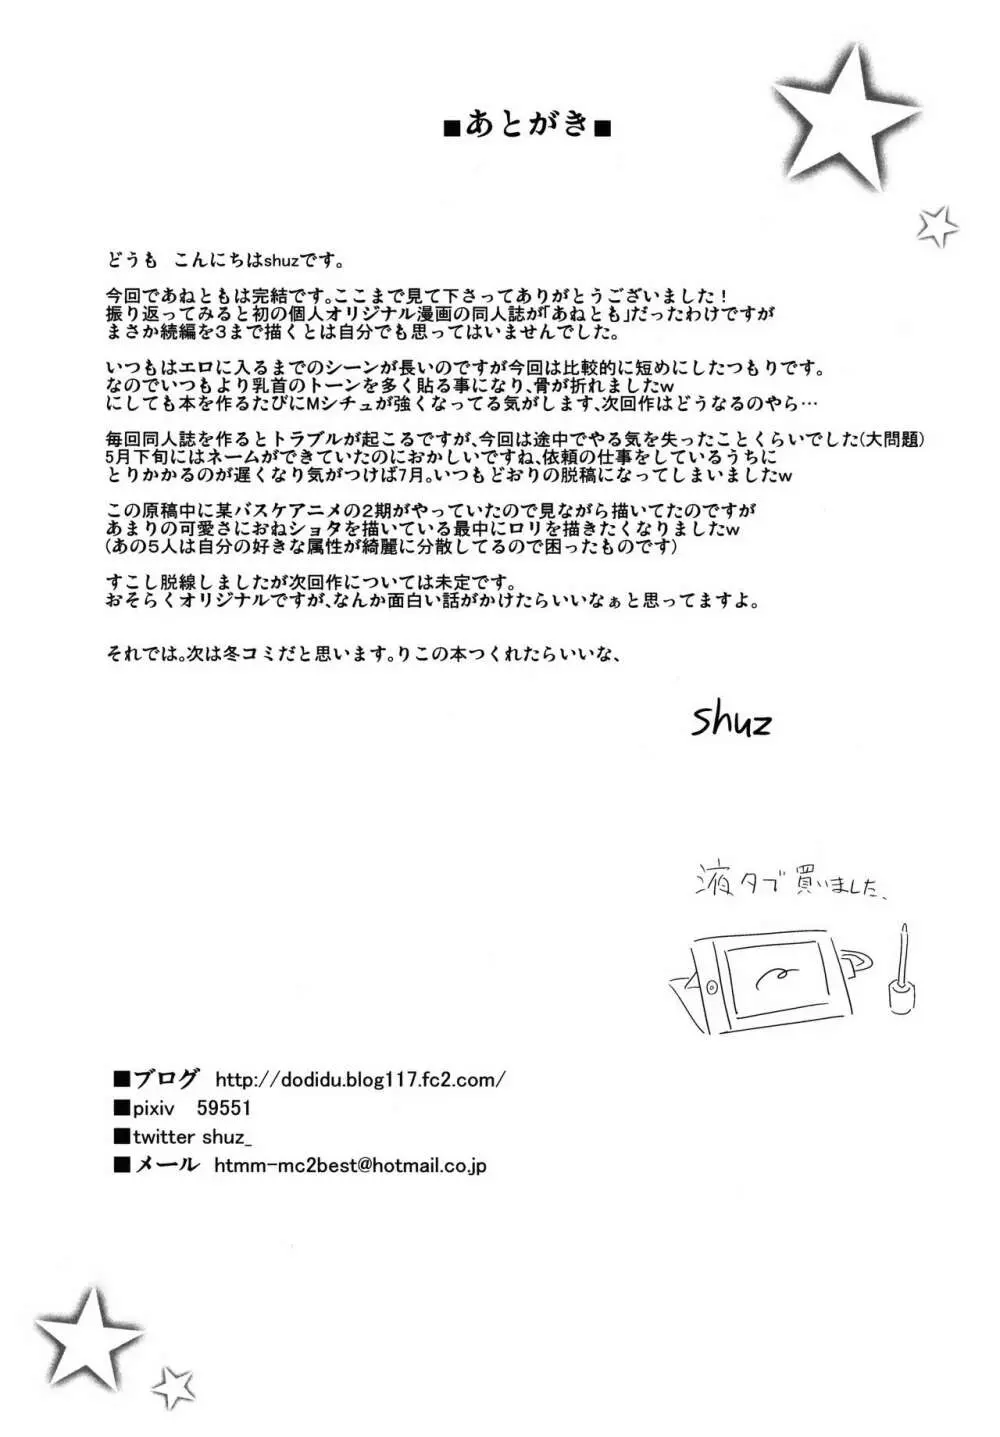 ■あとがき■
どうも　こんにちはshuzです。
今回であねともは完結です。ここまで見て下さってありがとうございました！
振り返ってみると初の個人オリジナル漫画の同人誌が「あねとも」だったわけですが
まさか続編を３まで描くとは自分でも思ってはいませんでした。
いつもはエロに入るまでのシーンが長いのですが今回は比較的に短めにしたつもりです。
なのでいつもより乳首のトーンを多く貼る事になり、骨が折れましたw
にしても本を作るたびにMシチュが強くなってる気がします、次回作はどうなるのやら…
毎回同人誌を作るとトラブルが起こるですが、今回は途中でやる気を失ったことくらいでした(大問題)
5月下旬にはネームができていたのにおかしいですね、依頼の仕事をしているうちに
とりかかるのが遅くなり気がつけば7月。いつもどおりの脱稿になってしまいましたw
この原稿中に某バスケアニメの２期がやっていたので見ながら描いてたのですが
あまりの可愛さにおねショタを描いている最中にロリを描きたくなりましたw
(あの５人は自分の好きな属性が綺麗に分散してるので困ったものです)
すこし脱線しましたが次回作については未定です。
おそらくオリジナルですが、なんか面白い話がかけたらいいなぁと思ってますよ。
それでは。次は冬コミだと思います。りこの本つくれたらいいな、
shuz
液タブ買いました、
■ブログ　http://dodidu.blog117.fc2.com/
■pixiv　59551
■twitter shuz_
■メール　htmm-mc2best@hotmail.co.jp